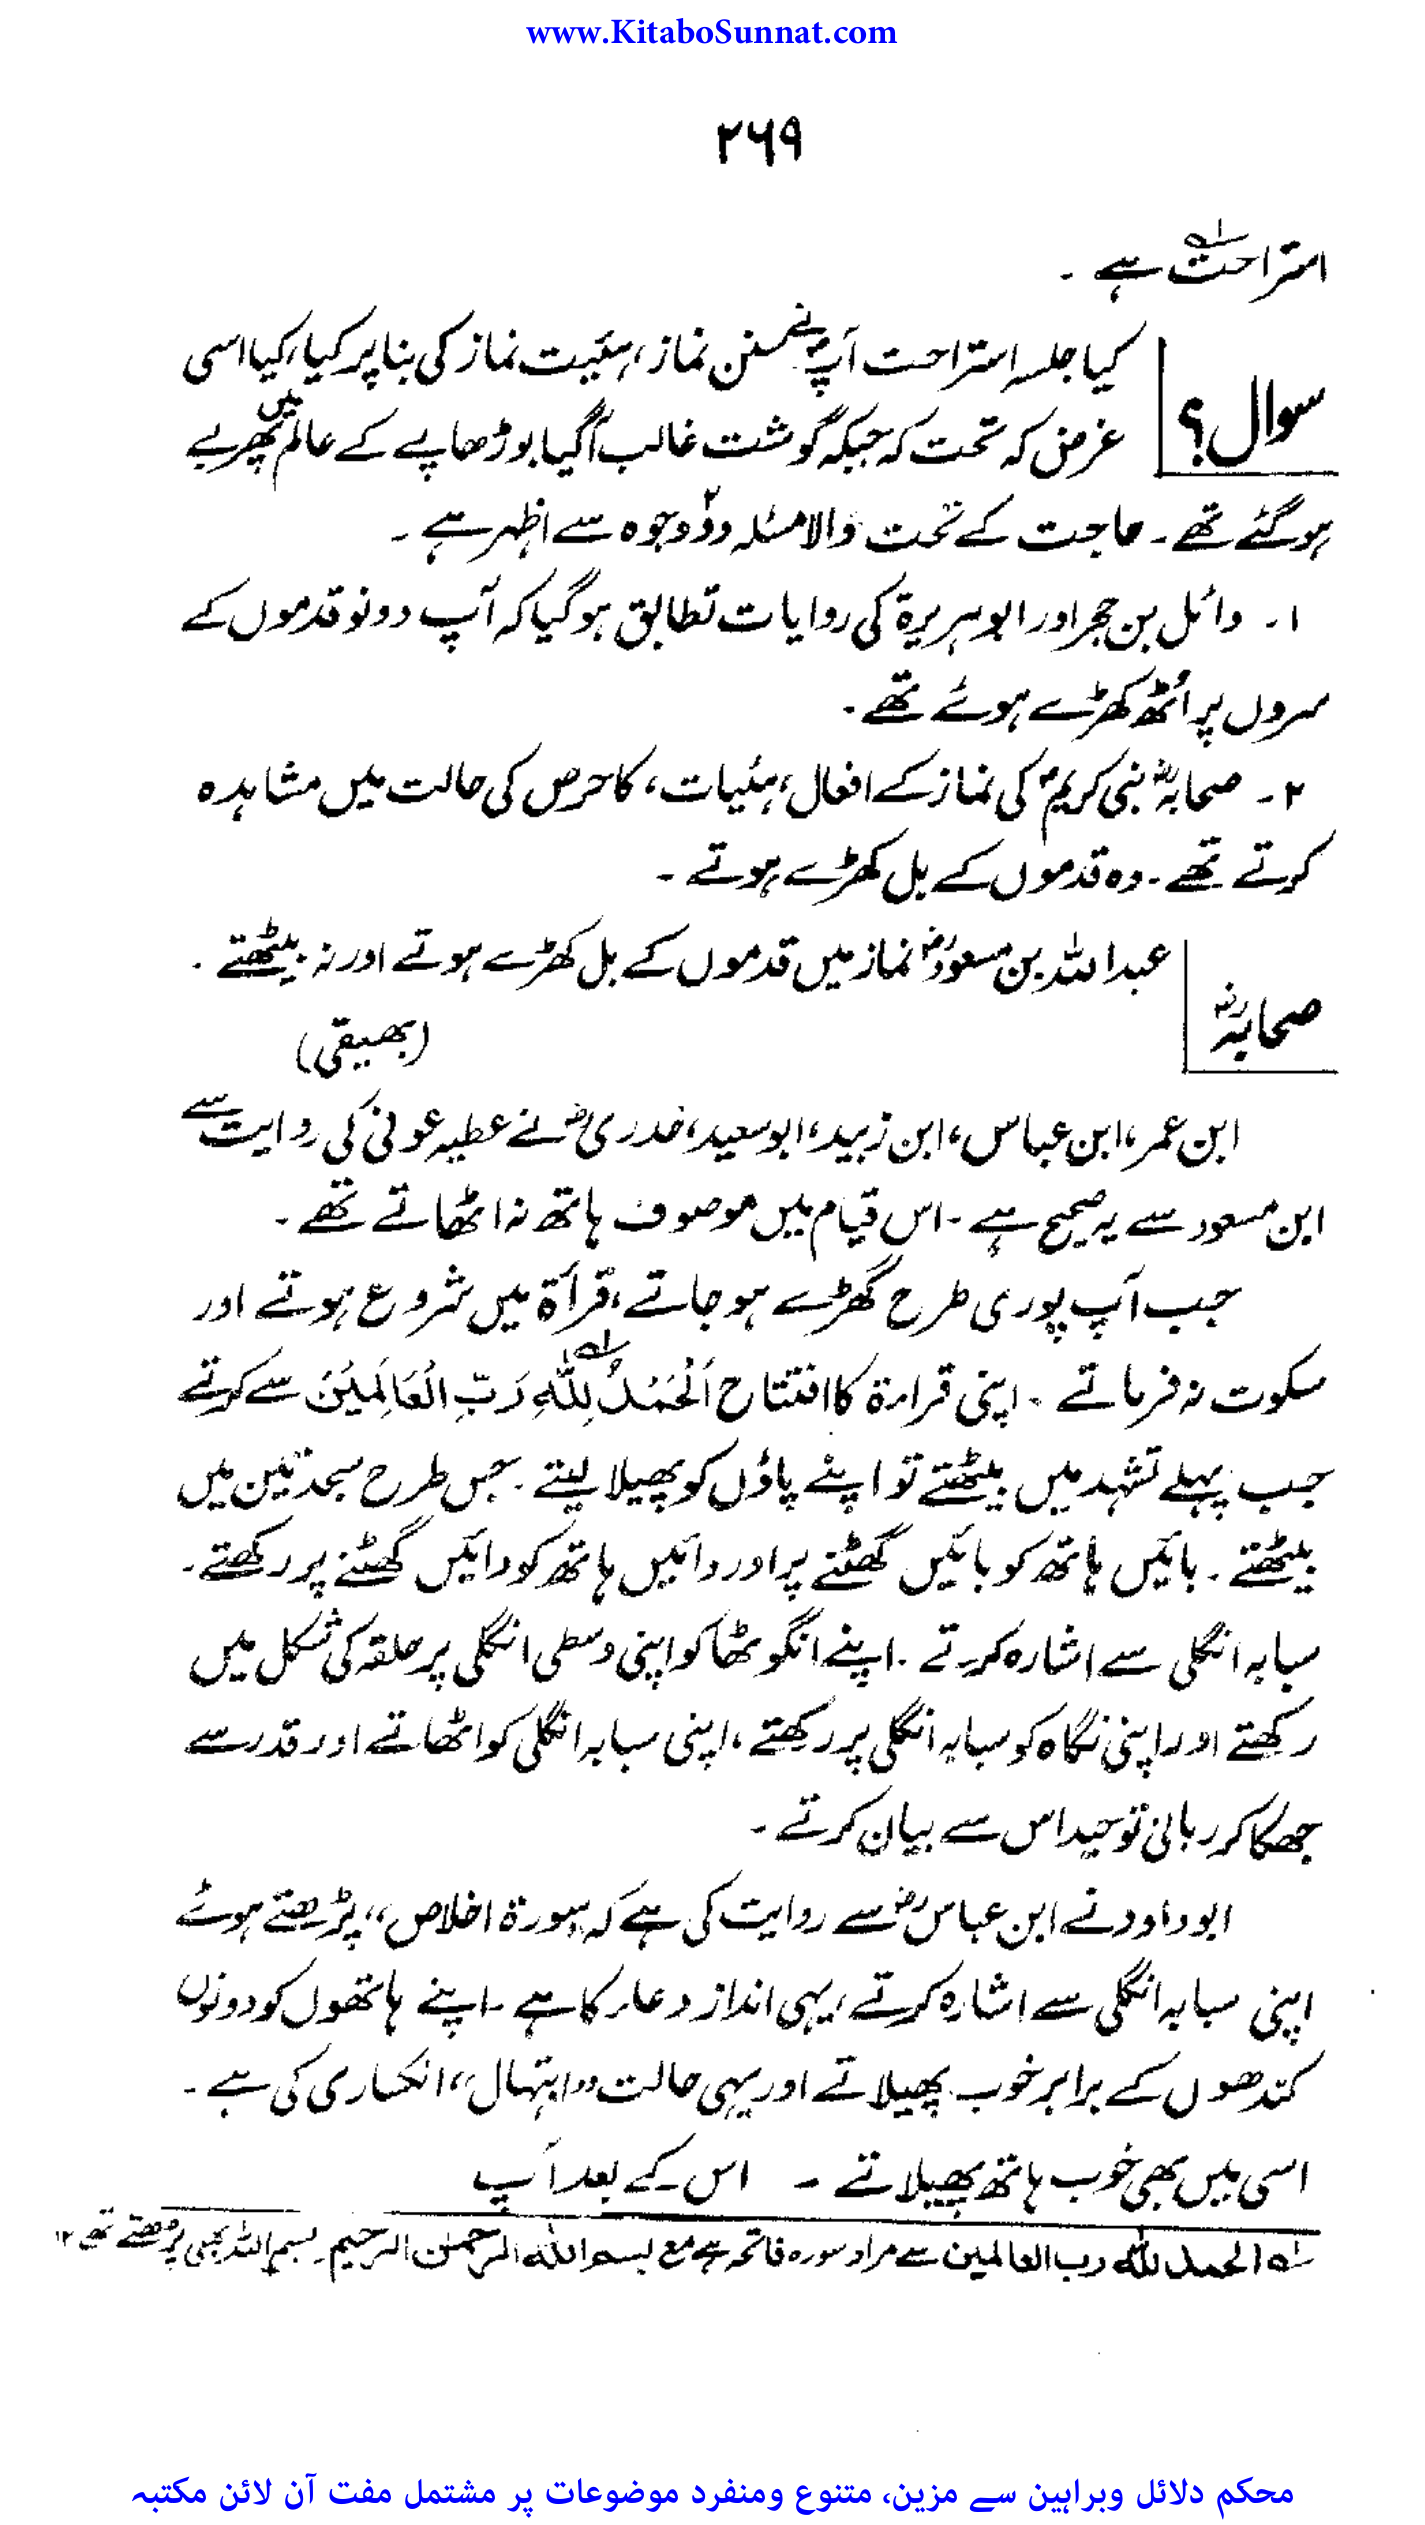 www.KitaboSunnat.com
۲۶۹
استراحت۱ہ ہے ۔
سوال؟
کیا جلسہ استراحت آپؐ نے سنن نماز، ہئیت نماز کی بنا پر کیا، کیا اسی
غرض کہ تحت کہ جبکہ گوشت غالب آگیا بوڑھاپے کے عالم میں پھر بے
ہو گئے تھے ۔ حاجت کے تحت والا مسئلہ دوؔ۲ وجوہ سے اظہر ہے ۔
۱۔ وائل بن حجر اور ابوہریرۃ کی روایات تطابق ہوگیا کہ آپ دونو قدموں کے
سروں پر اُٹھ کھڑے ہوئے تھے ۔
۲۔ صحابہؓ نبی کریمؐ کی نماز کے افعال، ہئیات، کا حرص کی حالت میں مشاہدہ
کرتے تھے ۔ وہ قدموں کے بل کھڑے ہوتے ۔
صحابہؓ
عبداللہ بن مسعودؓ نماز میں قدموں کے بل کھڑے ہوتے اور نہ بیٹھتے ۔
(بھیقی)
ابن عمر، ابن عباس، ابن زبید، ابو سعید، خدریؓ نے عطیہ عوفی کی روایت سے
ابن مسعود سے یہ صحیح ہے ۔ اس قیام میں موصوف ہاتھ نہ اٹھاتے تھے ۔
جب آپ پوری طرح کھڑے ہو جاتے، قرأۃ میں شروع ہوتے اور
سکوت نہ فرماتے ۔ اپنی قراءۃ کا افتتاح اَلْحَمْدُ۱ہ لِلّٰہِ رَبِّ الْعَالَمِیْنَ سے کرتے
جب پہلے تشہد میں بیٹھتے تو اپنے پاؤں کو پھیلا لیتے ۔ جس طرح سجدتین میں
بیٹھتے ۔ بائیں ہاتھ کو بائیں گھٹنے پر اور دائیں ہاتھ کو دائیں گھٹنے پر رکھتے ۔
سبابہ انگلی سے اشارہ کرتے ۔ اپنے انگوٹھا کو اپنی وسطی انگلی پر حلقہ کی شکل میں
رکھتے اور اپنی نگاہ کو سبابہ انگلی پر رکھتے، اپنی سبابہ انگلی کو اٹھاتے اور قدرے
جھکا کر ربانی توحید اس سے بیان کرتے ۔
ابوداود نے ابن عباسؓ سے روایت کی ہے کہ سورۃ اخلاص،، پڑھتے ہوئے
اپنی سبابہ انگلی سے اشارہ کرتے، یہی انداز دعاء کا ہے ۔ اپنے ہاتھوں کو دونوں
کندھوں کے برابر خوب پھیلاتے اور یہی حالت ,,ابتہال،، انکساری کی ہے ۔
اسی میں بھی خوب ہاتھ پھیلاتے ۔ اس کے بعد آپ
۱ہ الحمد للّٰہ رب العالمین سے مراد سورہ فاتحہ ہے مع بسم اللہ الرحمٰن الرحیم ۔ بسم اللہ بھی پڑھتے تھے ۱۲
محکم دلائل وبراہین سے مزین، متنوع ومنفرد موضوعات پر مشتمل مفت آن لائن مکتبہ